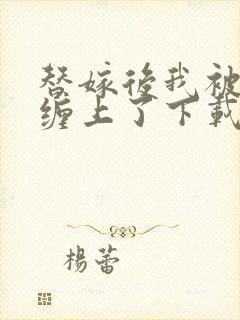 替嫁後我被
缠上了下載
楊蕾